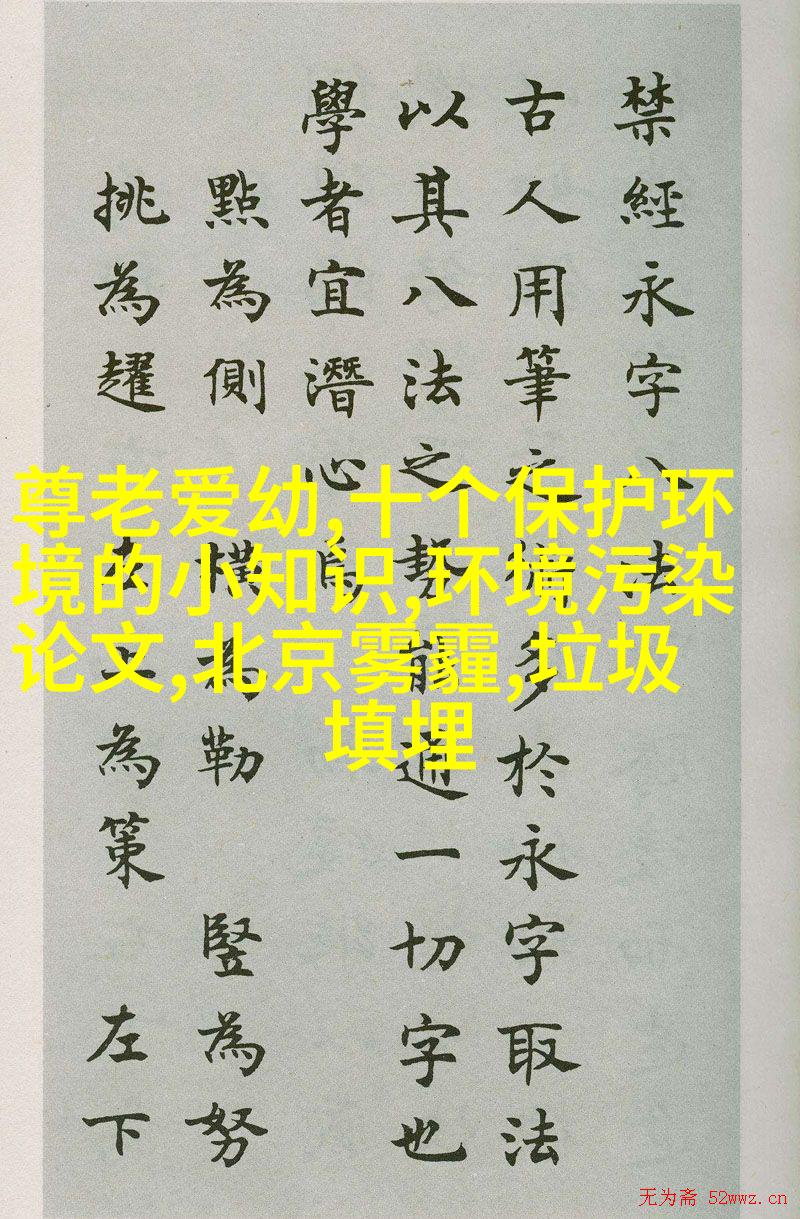 禁經永字八法
古人用筆之多於永字取法
以其八法之勢能通一切字也
學者宜潛心焉
點為側 橫為勒 豎為努
挑為趯 左上為策 左下
尊老爱幼,十个保护环
境的小知识,环境污染
论文,北京雾霾,垃圾
填埋
无为斋 52wwz.cn